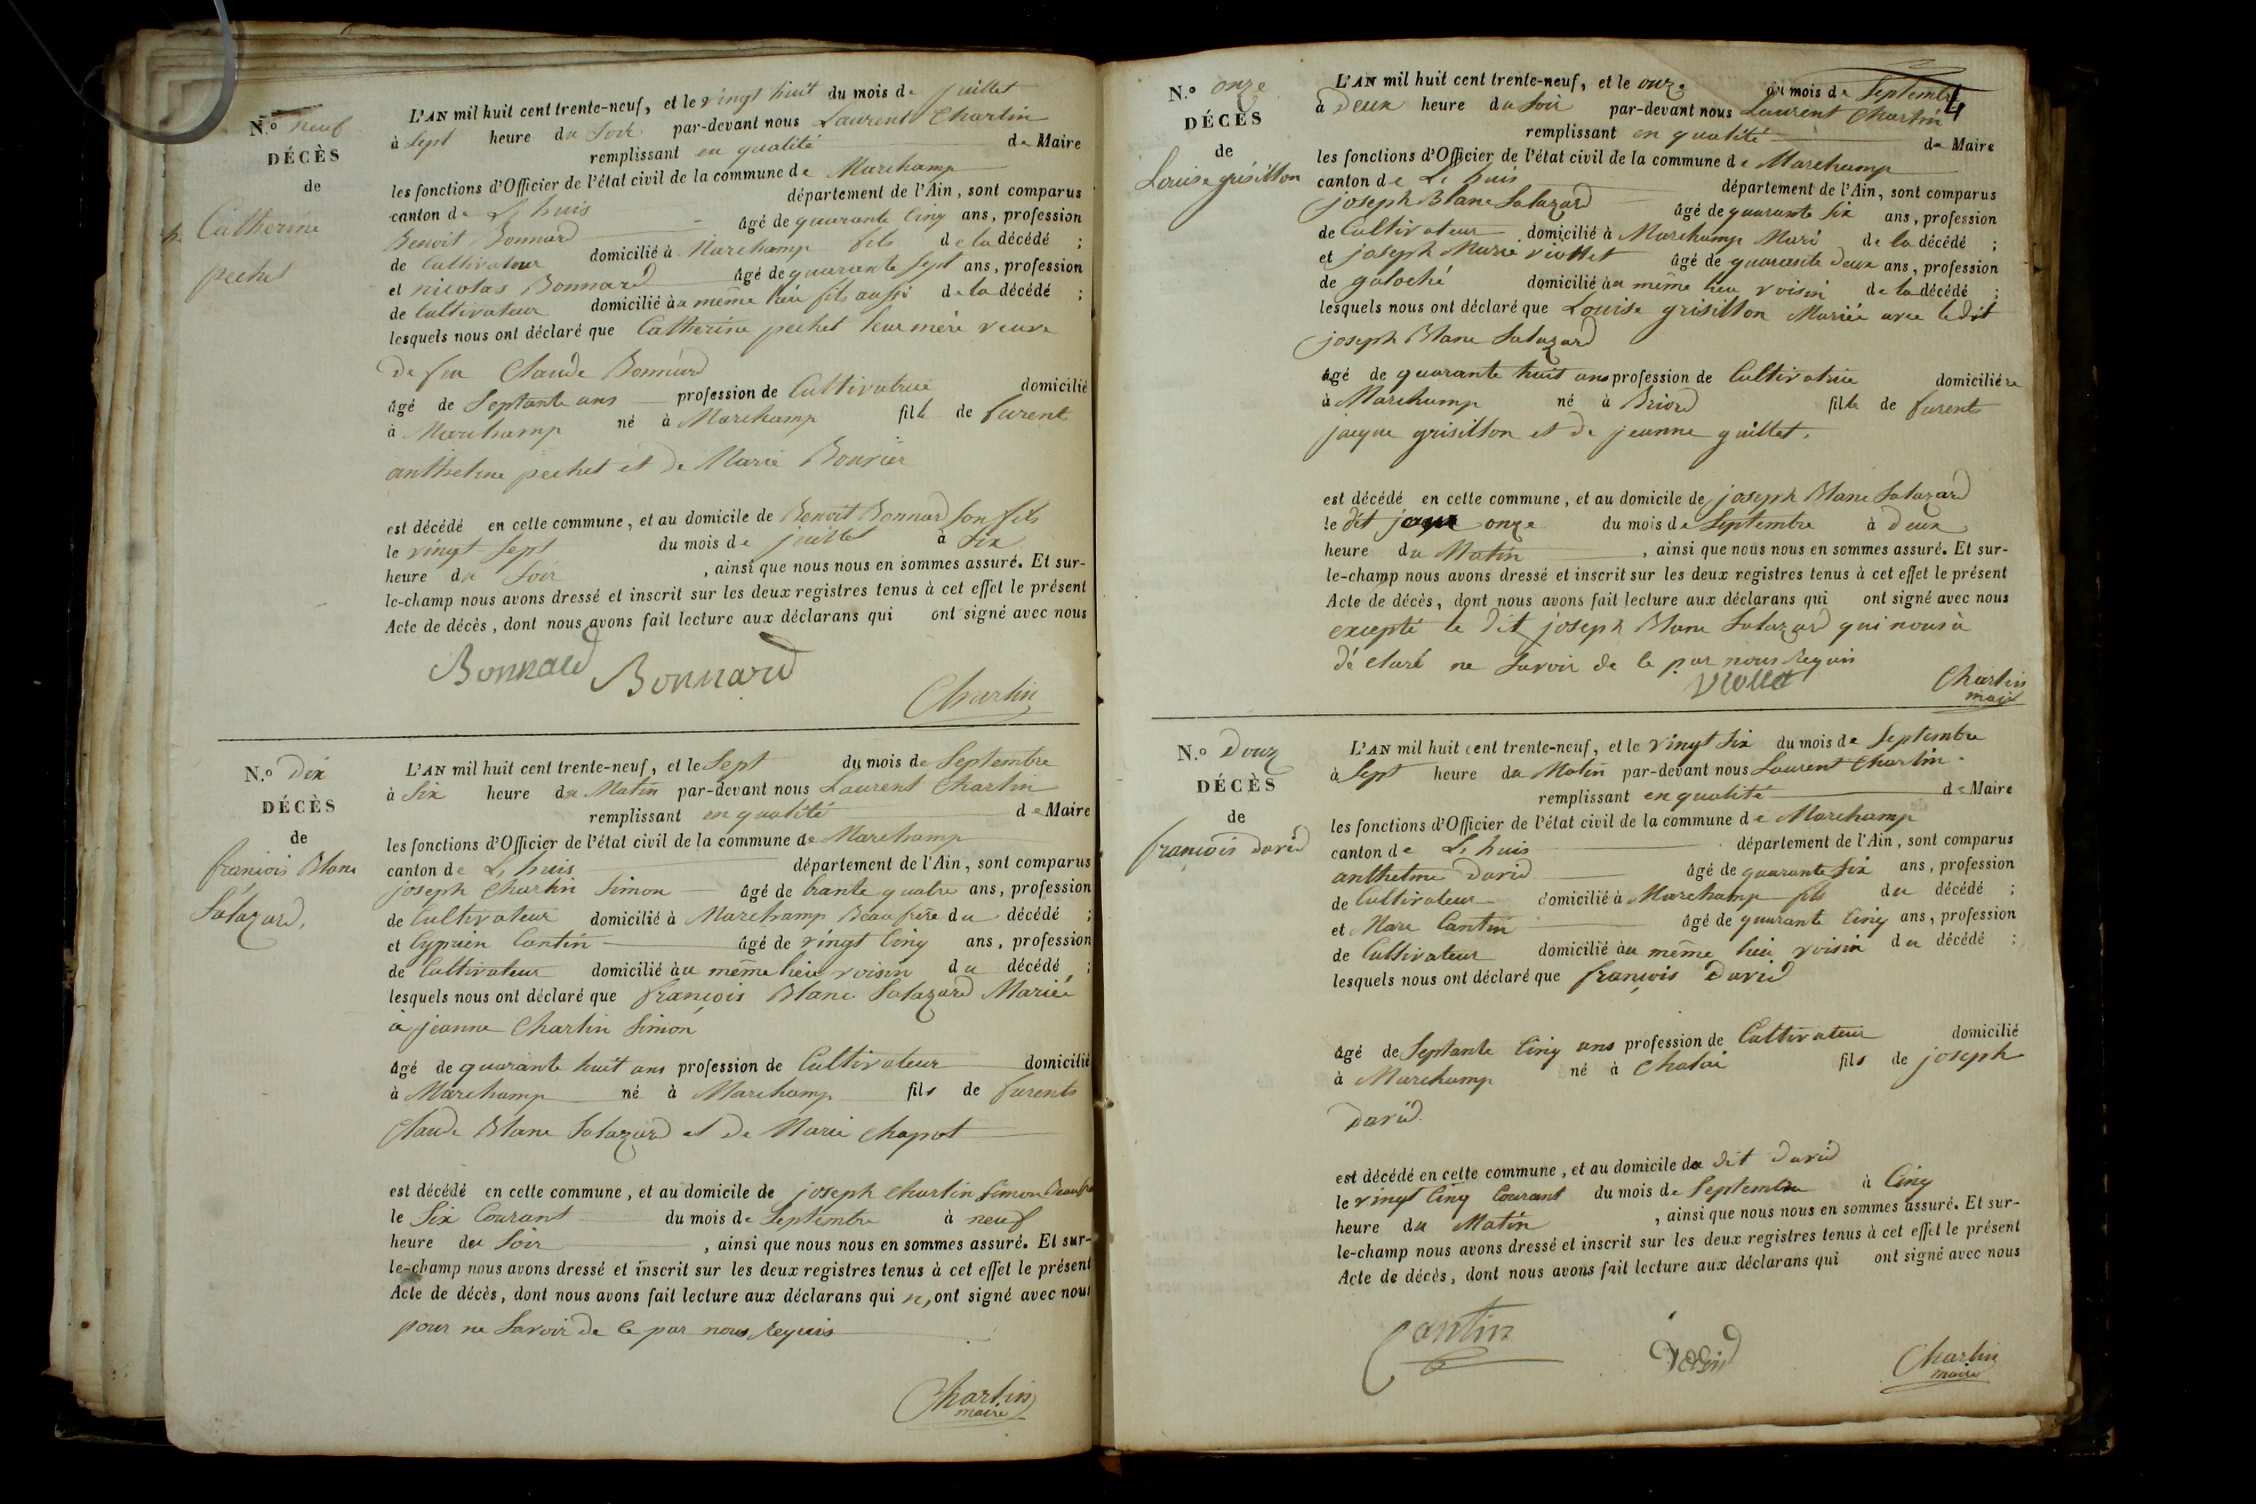 N.o neuf
DÉCÈS
de
Catherine
pechet
L'AN mil huit cent trente-neuf, et le vingt huit du mois de juillet
à Sept heure du Soir par-devant nous Laurent Charlin
remplissant en qualité de Maire
les fonctions d'Officier de l'état civil de la commune de Marchamp
canton de L, huis département de l'Ain, sont comparus
Benoit Bonnard âgé de quarante Cinq ans, profession
de Cultivateur domicilié à Marchamp fils de la décédé ;
et nicolas Bonnard âgé de quarante Sept ans, profession
de Cultivateur domicilié àu même lieu fils aussi de la décédé ;
lesquels nous ont déclaré que Catherine pechet leur mère veuve
de feu Claude Bonnard
âgé de Septante ans profession de Cultivatrice domicilié
à Marchamp né à Marchamp fille de furent
anthelme pechet et de Marie Bouvier
est décédé en cette commune, et au domicile de Benoit Bonnard Son fils
le vingt Sept du mois de juillet à Six
heure du Soir, ainsi que nous nous en sommes assuré. Et sur-
le-champ nous avons dressé et inscrit sur les deux registres tenus à cet effet le présent
Acte de décès, dont nous avons fait lecture aux déclarans qui ont signé avec nous
Bonnard Bonnard
Charlin
N.o Dix
DÉCÈS
de
françois Blanc
Salazard,
L'AN mil huit cent trente-neuf, et le Sept du mois de Septembre
à Six heure du Matin par-devant nous Laurent Charlin
remplissant en qualité de Maire
les fonctions d'Officier de l'état civil de la commune de Marchamp
canton de L, huis département de l'Ain, sont comparus
joseph Charlin Simon âgé de trante quatre ans, profession
de Cultivateur domicilié à Marchamp Beau frère du décédé ;
et Cyprien Cantin âgé de vingt Cinq ans, profession
de Cultivateur domicilié àu même lieu voisin du décédé ;
lesquels nous ont déclaré que françois Blanc Salazard Mariée
à jeanne Charlin Simon
âgé de quarante huit ans profession de Cultivateur domicilié
à Marchamp né à Marchamp fils de furents
Claude Blanc Salazard et de Marie Chapot
est décédé en cette commune, et au domicile de joseph Charlin Simon Beau fre
le Six Courant du mois de Septembre à neuf
heure du Soir, ainsi que nous nous en sommes assuré. Et sur-
le-champ nous avons dressé et inscrit sur les deux registres tenus à cet effet le présent
Acte de décès, dont nous avons fait lecture aux déclarans qui n, ont signé avec nous
pour ne Savoir de ce par nous Requis
Charlin
maire
4
N.o onze
DÉCÈS
de
Louise grisillon
L'AN mil huit cent trente-neuf, et le onze du mois de Septembre
à Deux heure du Soir par-devant nous Laurent Charlin
remplissant en qualité de Maire
les fonctions d'Officier de l'état civil de la commune de Marchamp
canton de L, huis département de l'Ain, sont comparus
joseph Blanc Salazard âgé de quarante Six ans, profession
de Cultivateur domicilié à Marchamp Mari de la décédé ;
et joseph Marie viollet âgé de quarante Deux ans, profession
de galoché domicilié àu même lieu voisin de la décédé ;
lesquels nous ont déclaré que Louise grisillon Mariée avec ledit
joseph Blanc Salazard
âgé de quarante huit ans profession de Cultivatrice domiciliére
à Marchamp né à Briord fille de furents
jacque grisillon et de jeanne guillet,
est décédé en cette commune, et au domicile de joseph Blanc Salazard
le dit jour onze du mois de Septembre à deux
heure du Matin, ainsi que nous nous en sommes assuré. Et sur-
le-champ nous avons dressé et inscrit sur les deux registres tenus à cet effet le présent
Acte de décès, dont nous avons fait lecture aux déclarans qui ont signé avec nous
excepté le dit joseph Blanc Salazard qui nous à
dé claré ne Savoir de ce par nous Requis
viollet
Charlin
maire
N.o Douz
DÉCÈS
de
françois David
L'AN mil huit cent trente-neuf, et le vingt Six du mois de Septembre
à Sept heure du Matin par-devant nous Laurent Charlin.
remplissant en qualité de Maire
les fonctions d'Officier de l'état civil de la commune de Marchamp
canton de L, huis département de l'Ain, sont comparus
anthelme David âgé de quarante Six ans, profession
de Cultivateur domicilié à Marchamp fils du décédé ;
et Marc Cantin âgé de quarante Cinq ans, profession
de Cultivateur domicilié àu même lieu voisin du décédé ;
lesquels nous ont déclaré que françois David
âgé de Septante Cinq ans profession de Cultivateur domicilié
à Marchamp né à Chalai fils de joseph
David.
est décédé en cette commune, et au domicile du dit David
le vingt Cinq Courant du mois de Septembre à Cinq
heure du Matin, ainsi que nous nous en sommes assuré. Et sur-
le-champ nous avons dressé et inscrit sur les deux registres tenus à cet effet le présent
Acte de décès, dont nous avons fait lecture aux déclarans qui ont signé avec nous
Cantin
David
Charlin
maire